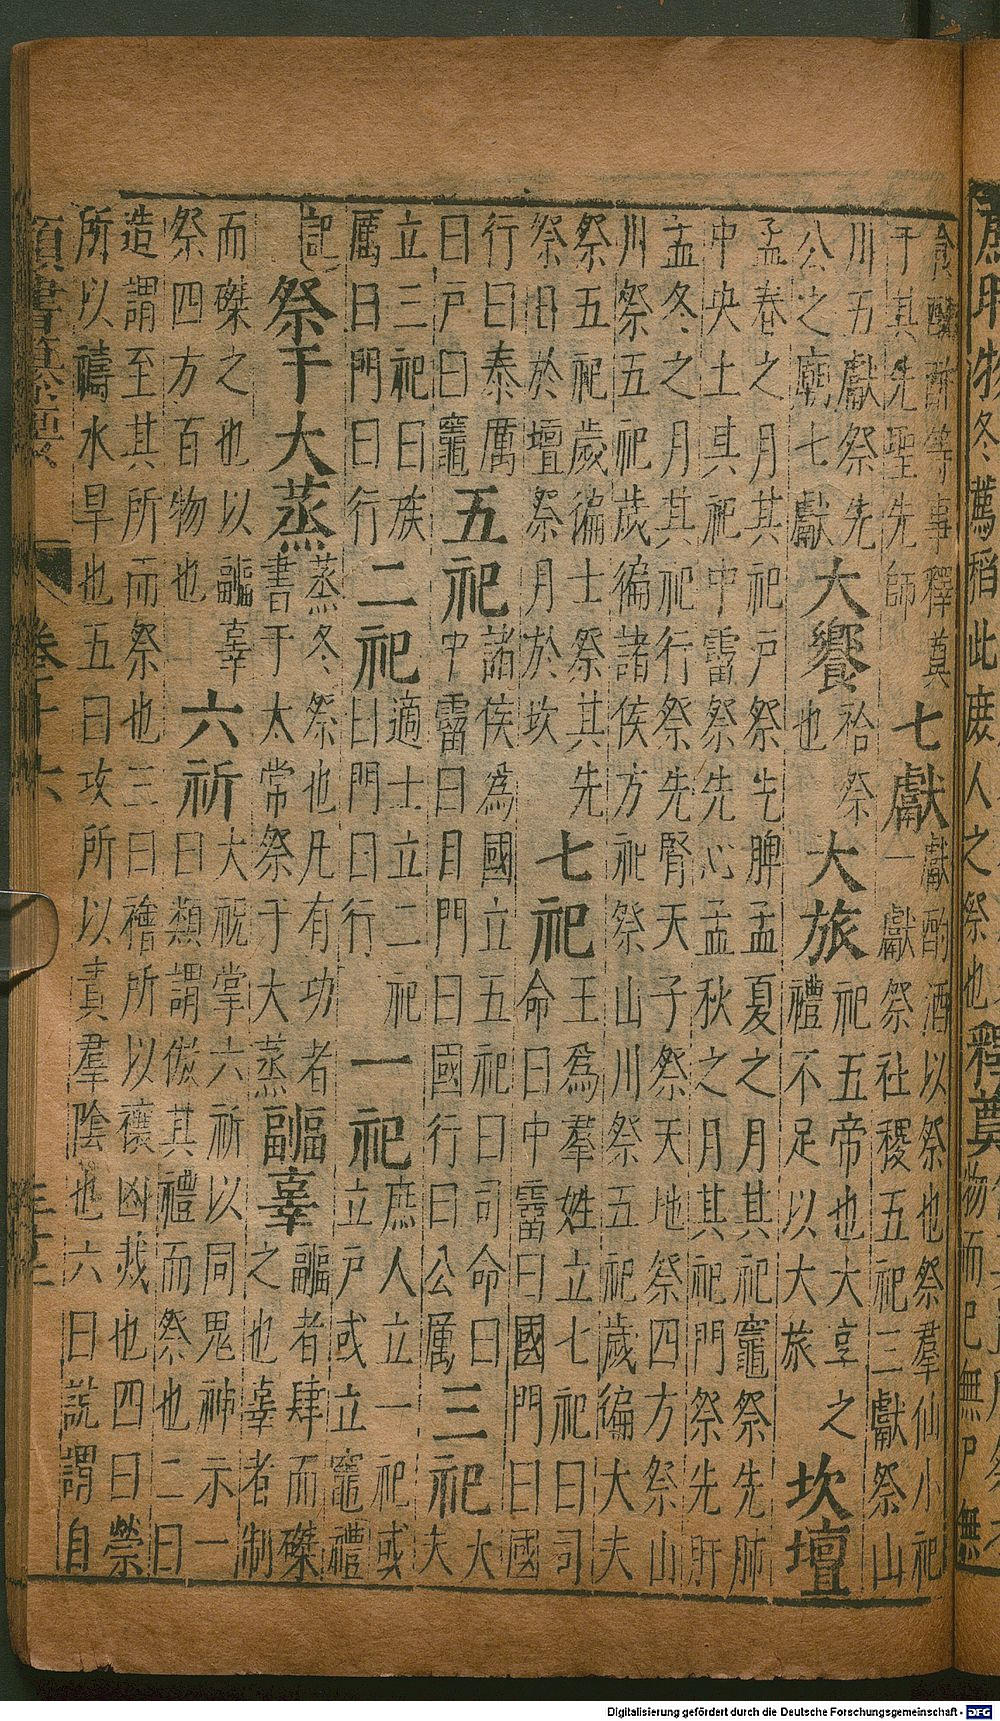 薦時物冬薦稻此庶人之祭也釋奠
食醴酌等事釋奠
于其先聖先師
七獻
獻酌酒以祭也祭羣仙小祀
一獻祭社稷五祀三獻祭山
川五獻祭先
公之廟七獻
大饗
祫祭
也
大旅
祀五帝也大享之
禮不足以大旅
坎壇
孟春之月其祀戶祭先脾孟夏之月其祀竈祭先肺
中央土其祀中霤祭先心孟秋之月其祀門祭先肝
孟冬之月其祀行祭先腎天子祭天地祭四方祭山
川祭五祀歲徧諸侯方祀祭山川祭五祀歲徧大夫
祭五祀歲徧士祭其先
祭日於壇祭月於坎
七祀
王為羣姓立七祀曰司
命曰中霤曰國門曰國
行曰泰厲
曰戶曰竈
五祀
諸侯為國立五祀曰司命曰
中霤曰目門曰國行曰公厲
三祀
大
夫
立三祀曰族
厲曰門曰行
二祀
適士立二祀
曰門曰行
一祀
庶人立一祀或
立戶或立竈禮
記
祭于大蒸
蒸冬祭也凡有功者
書于太常祭于大蒸
疈辜
疈者肆而磔
之也辜者制
而磔之也以疈辜
祭四方百物也
六祈
大祝掌六祈以同鬼神示一
曰類謂倣其禮而祭也二曰
造謂至其所而祭也三曰禬所以禳凶烖也四曰禜
所以禱水旱也五曰攻所以責羣陰也六曰說謂自
類書纂要
Digitalisierung gefördert durch die Deutsche Forschungsgemeinschaft - DFG